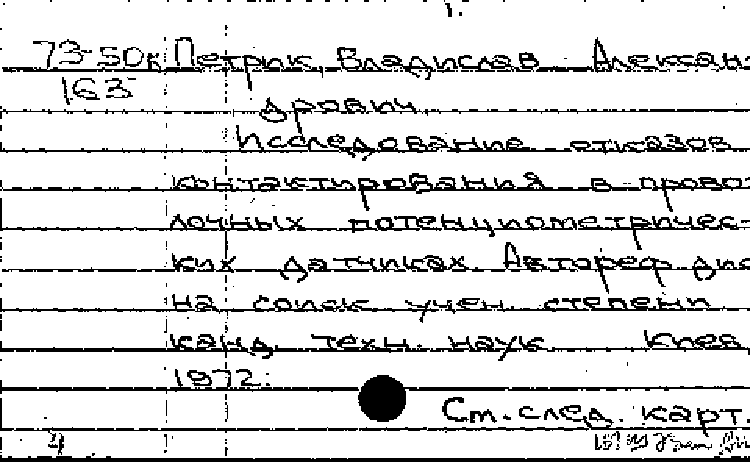 73-50к Петрик, Владислав Алексан-
163
дрович.
Исследование отказов
контактирования в прово-
лочных потенциометричес-
ких датчиках. Автореф. дис.
на соиск. учен. степени
канд. техн. наук. Киев
1972.
См. след. карт.
4